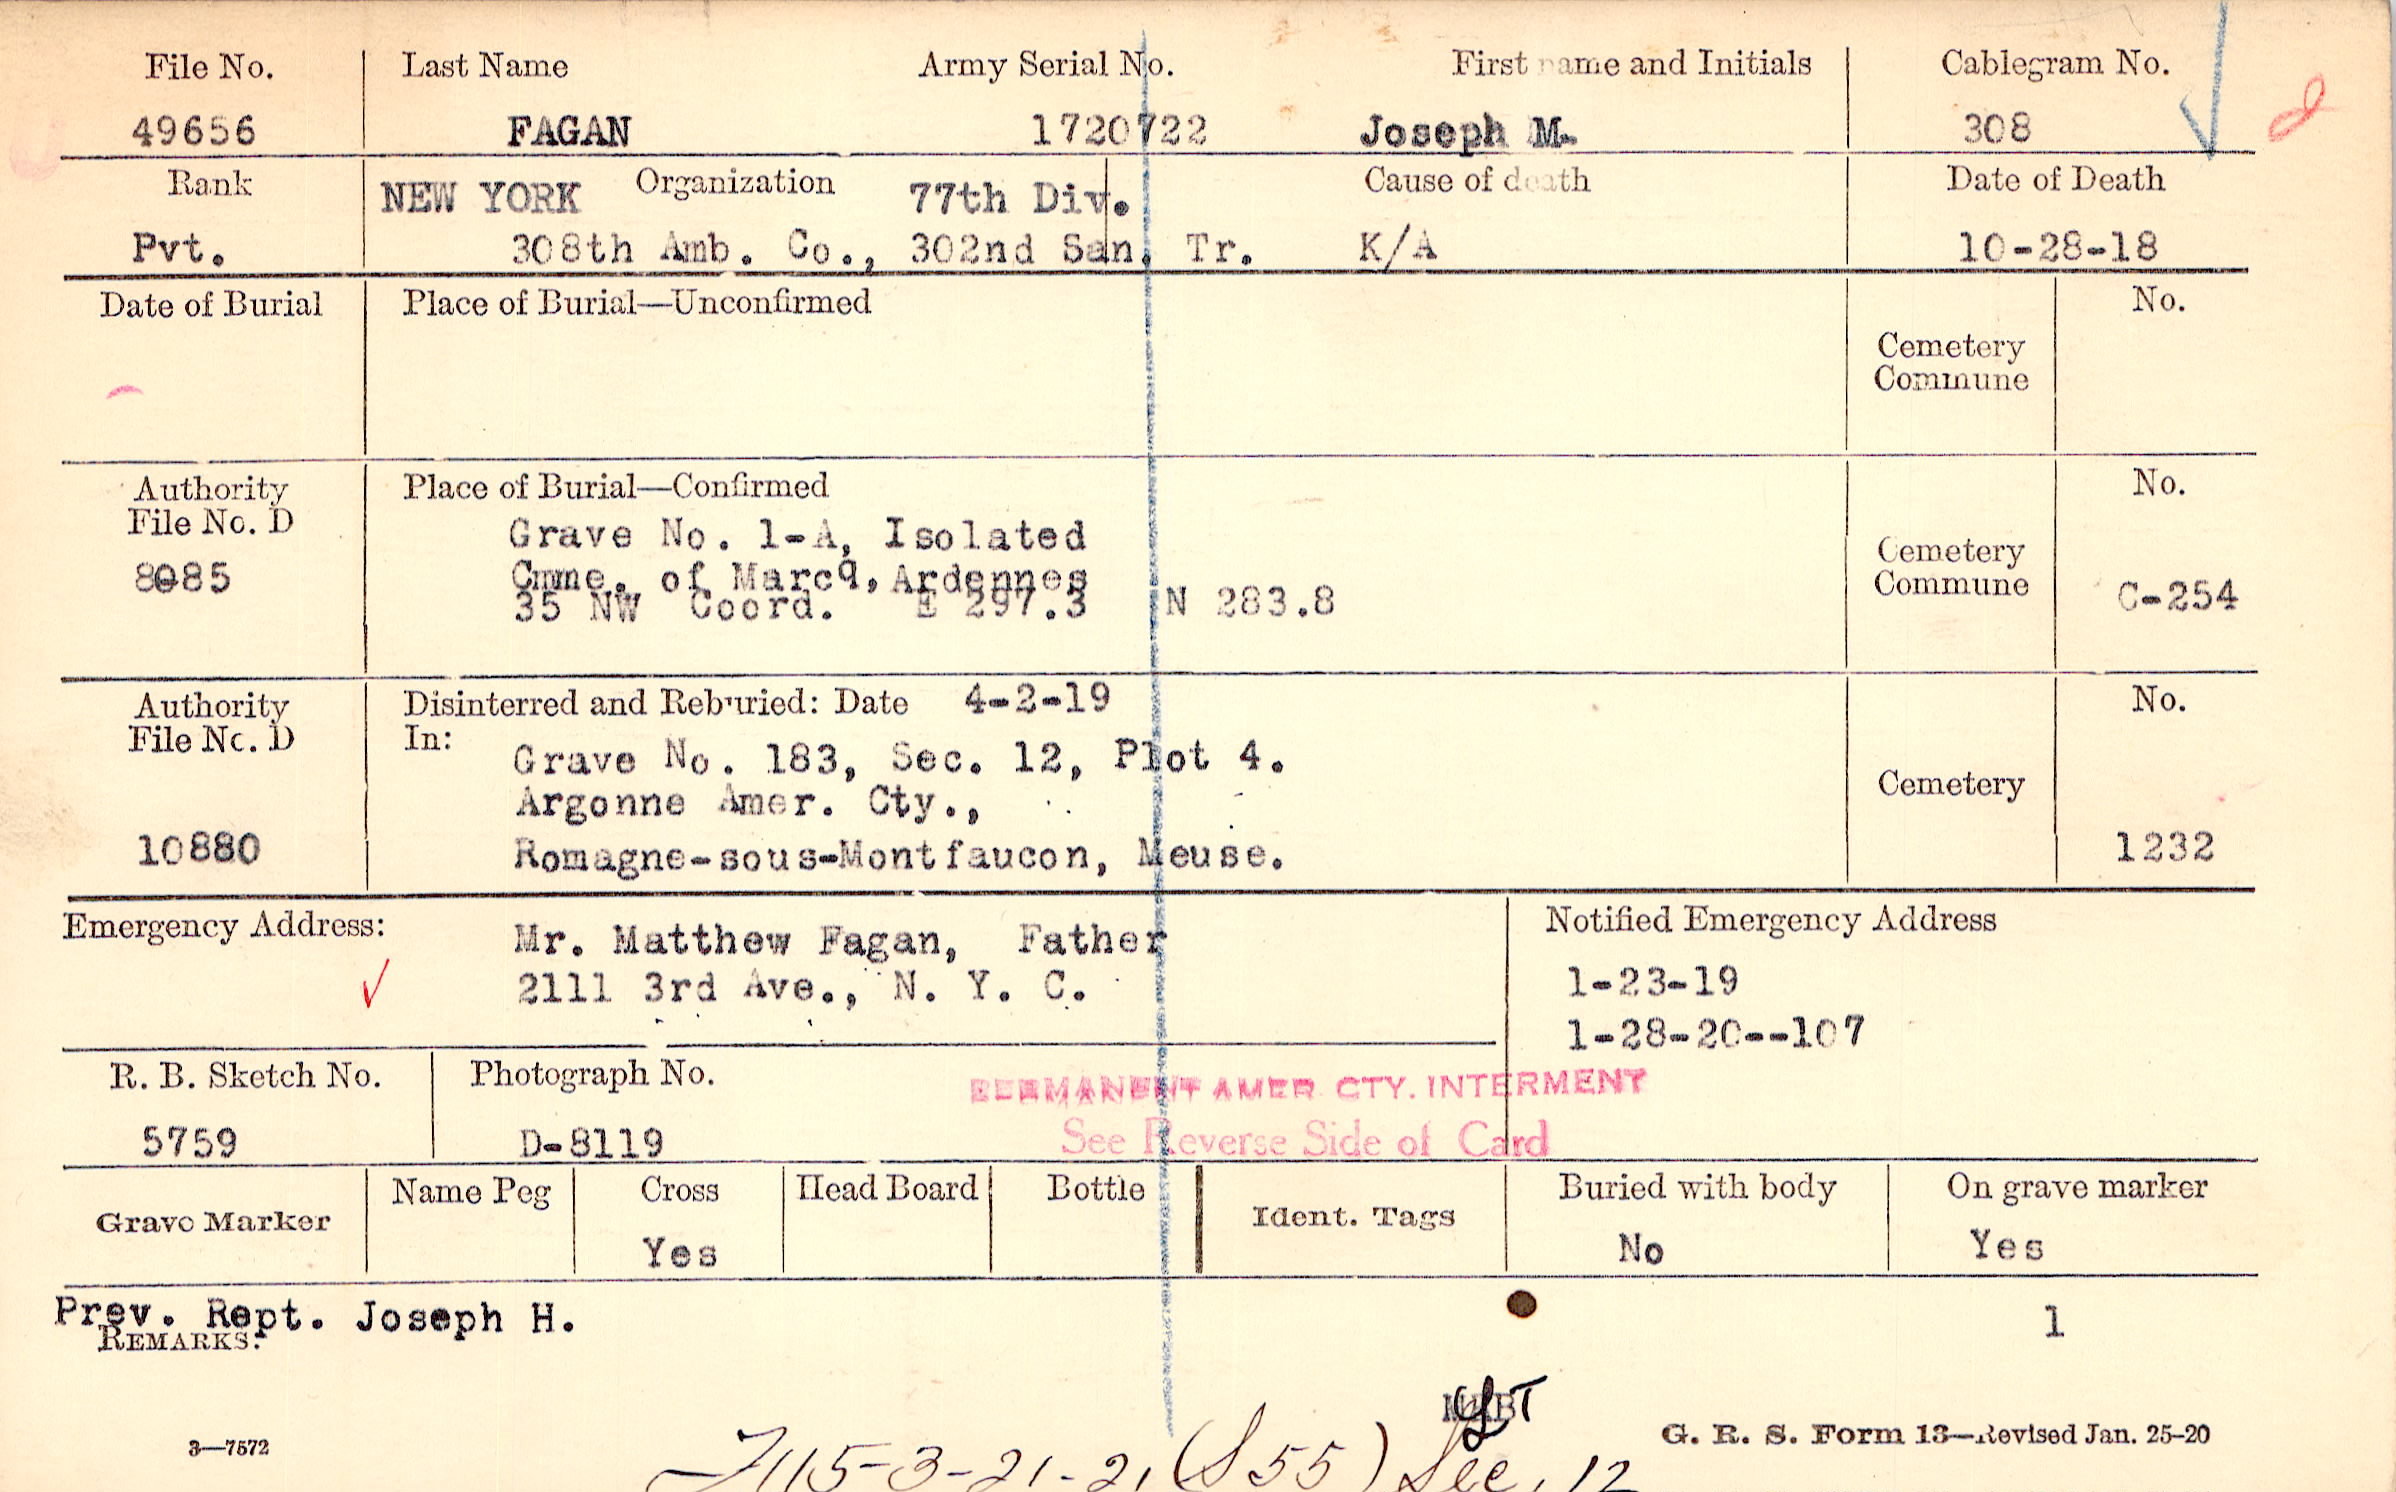 File No. Last Name Army Serial No. First name and Initials Cablegram No.
49656 FAGAN 1720722 Joseph M. 308
Rank NEW YORK Organization 77th Div. Cause of death Date of Death
Pvt. 308th Amb. Co., 302nd San. Tr. K/A 10-28-18
Date of Burial Place of Burial—Unconfirmed No.
Cemetery
Commune
Authority Place of Burial—Confirmed No.
File No. D
Grave No. 1-A, Isolated
8085 Cmme. of Marcq, Ardennes Cemetery
35 NW Coord. E 297.3 N 283.8 Commune C-254
Authority Disinterred and Reburied: Date 4-2-19 No.
File No. D In:
Grave No. 183, Sec. 12, Plot 4.
Argonne Amer. Cty., Cemetery
10880 Romagne-sous-Montfaucon, Meuse. 1232
Emergency Address: Mr. Matthew Fagan, Father Notified Emergency Address
2111 3rd Ave., N. Y. C. 1-23-19
1-28-20--107
R. B. Sketch No. Photograph No. PERMANENT AMER CTY. INTERMENT
5759 D-8119 See Reverse Side of Card
Grave Marker Name Peg Cross Head Board Bottle Ident. Tags Buried with body On grave marker
Yes No Yes
Prev. Rept. Joseph H. 1
REMARKS:
3—7572 G. R. S. Form 13—Revised Jan. 25-20
3-21-21 (S55) Sec. 12